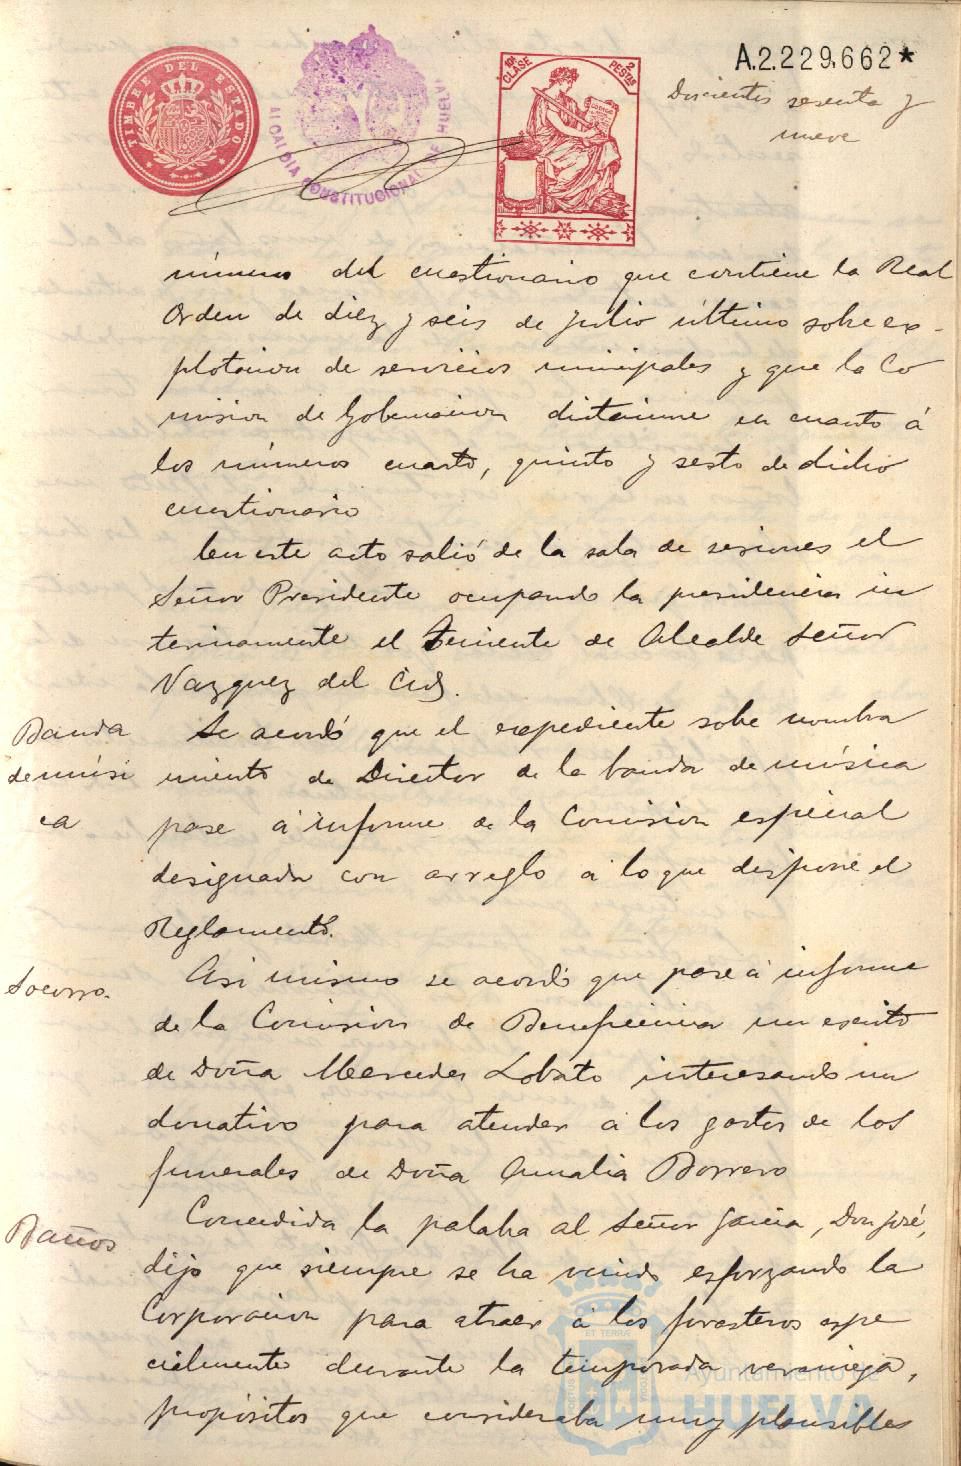 A.2.229,662*
TIMBRE DEL ESTADO
ALCALDIA CONSTITUCIONAL DE HUELVA
10ª CLASE 2 PESTAS
Doscientos sesenta y
nueve
número del cuestionario que contiene la Real
Orden de diez y seis de Julio último sobre ex-
plotacion de servicios municipales y que la Co
mision de Gobernacion dictamine en cuanto á
los números cuarto, quinto y sesto de dicho
cuestionario
En este acto salió de la sala de sesiones el
Señor Presidente ocupando la presidencia in
terinamente el Teniente de Alcalde Señor
Vazquez del Cid.
Banda
de músi
ca
Se acordó que el expediente sobre nombra
miento de Director de la banda de música
pase á informe de la Comision especial
designada con arreglo á lo que dispone el
Reglamento.
Socorro.
Asi mismo se acordó que pase á informe
de la Comision de Beneficencia un escrito
de Doña Mercedes Lobato interesando un
donativo para atender á los gastos de los
funerales de Doña Amalia Borrero
Baños
Concedida la palabra al Señor Garcia, Don José,
dijo que siempre se ha venido esforzando la
Corporacion para atraer á los forasteros espe
cialmente durante la temporada veraniega,
propósitos que consideraba muy plausibles
Ayuntamiento de
HUELVA